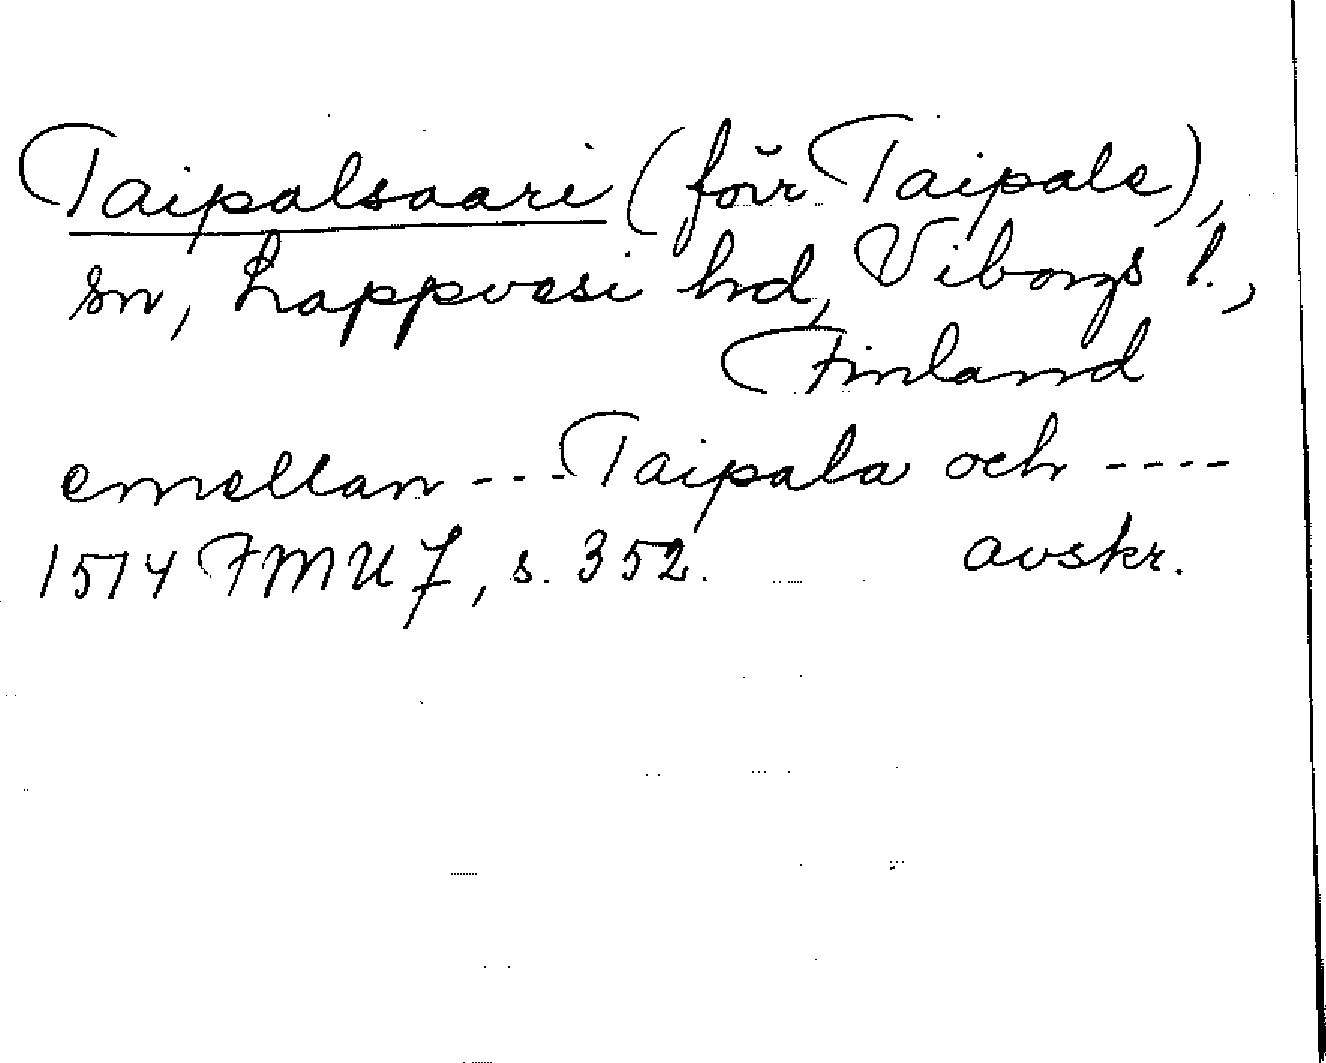 Taipalsaari (förr Taipale),
sn, Lappvesi hd, Viborgs l.,
Finland
emellan --- Taipala och ----
1514 FMU 7, s. 352. avskr.